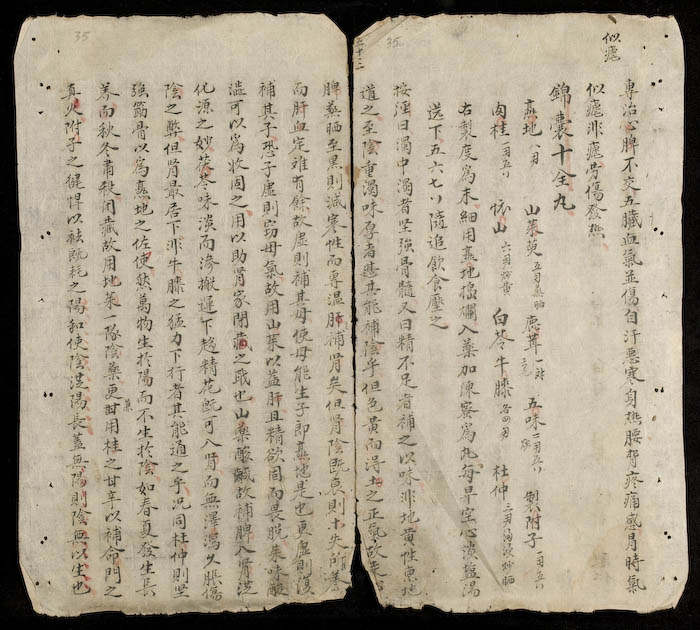 35
似瘧
專治心脾不交五臟血氣並傷自汗惡寒身热腰背疼痛感月時氣
似瘧非瘧勞傷發热
錦囊十全丸
熟地 八刄 山茱萸 鹿茸 一对 五味 一刄五卜 製附子 一刄五卜
肉桂 一刄五卜 怀山 六刄炒黄 白苓 牛膝 各四刄 杜仲
右製度為末細用熟地搗爛入藥加煉蜜為丸每早空心淡盐湯
送下五六七卜隨追飲食壓之
按淫曰濁中濁者坚強骨髓又曰精不足者補之以味非地黄性凍地
道之至陰重濁味厚者甚其能補陰乎但色黄而得土之正氣故走
35
脾蒸晒至黑則减寒性而專温肝補腎矣但腎陰既衰則十失所養
而肝血定难有餘故虚則補其母便母能生子即熟地是也更虚則復
補其子恐子虚則窃母氣故用山茱以益肝且精欲固而畏脱茱味酸
澁可以為收固之用以助腎家閉藏之职也山藥酸鹹故補脾入腎泄
化源之妙茯苓味淡而滲搬運下趍精花既可入腎而無澤瀉久服傷
陰之弊但腎最居下非牛膝之猛力下行者其能通之乎况同杜仲則坚
強筋骨以為熟地之佐使然萬物生於陽而不生於陰如春夏發生長
养而秋冬肅殺闭藏故用地茱一隊陰藥更甘用桂之甘辛以補命門之
藥
真火附子之健悍以祛既耗之陽和使陰从陽長蓋無陽則陰無以生也